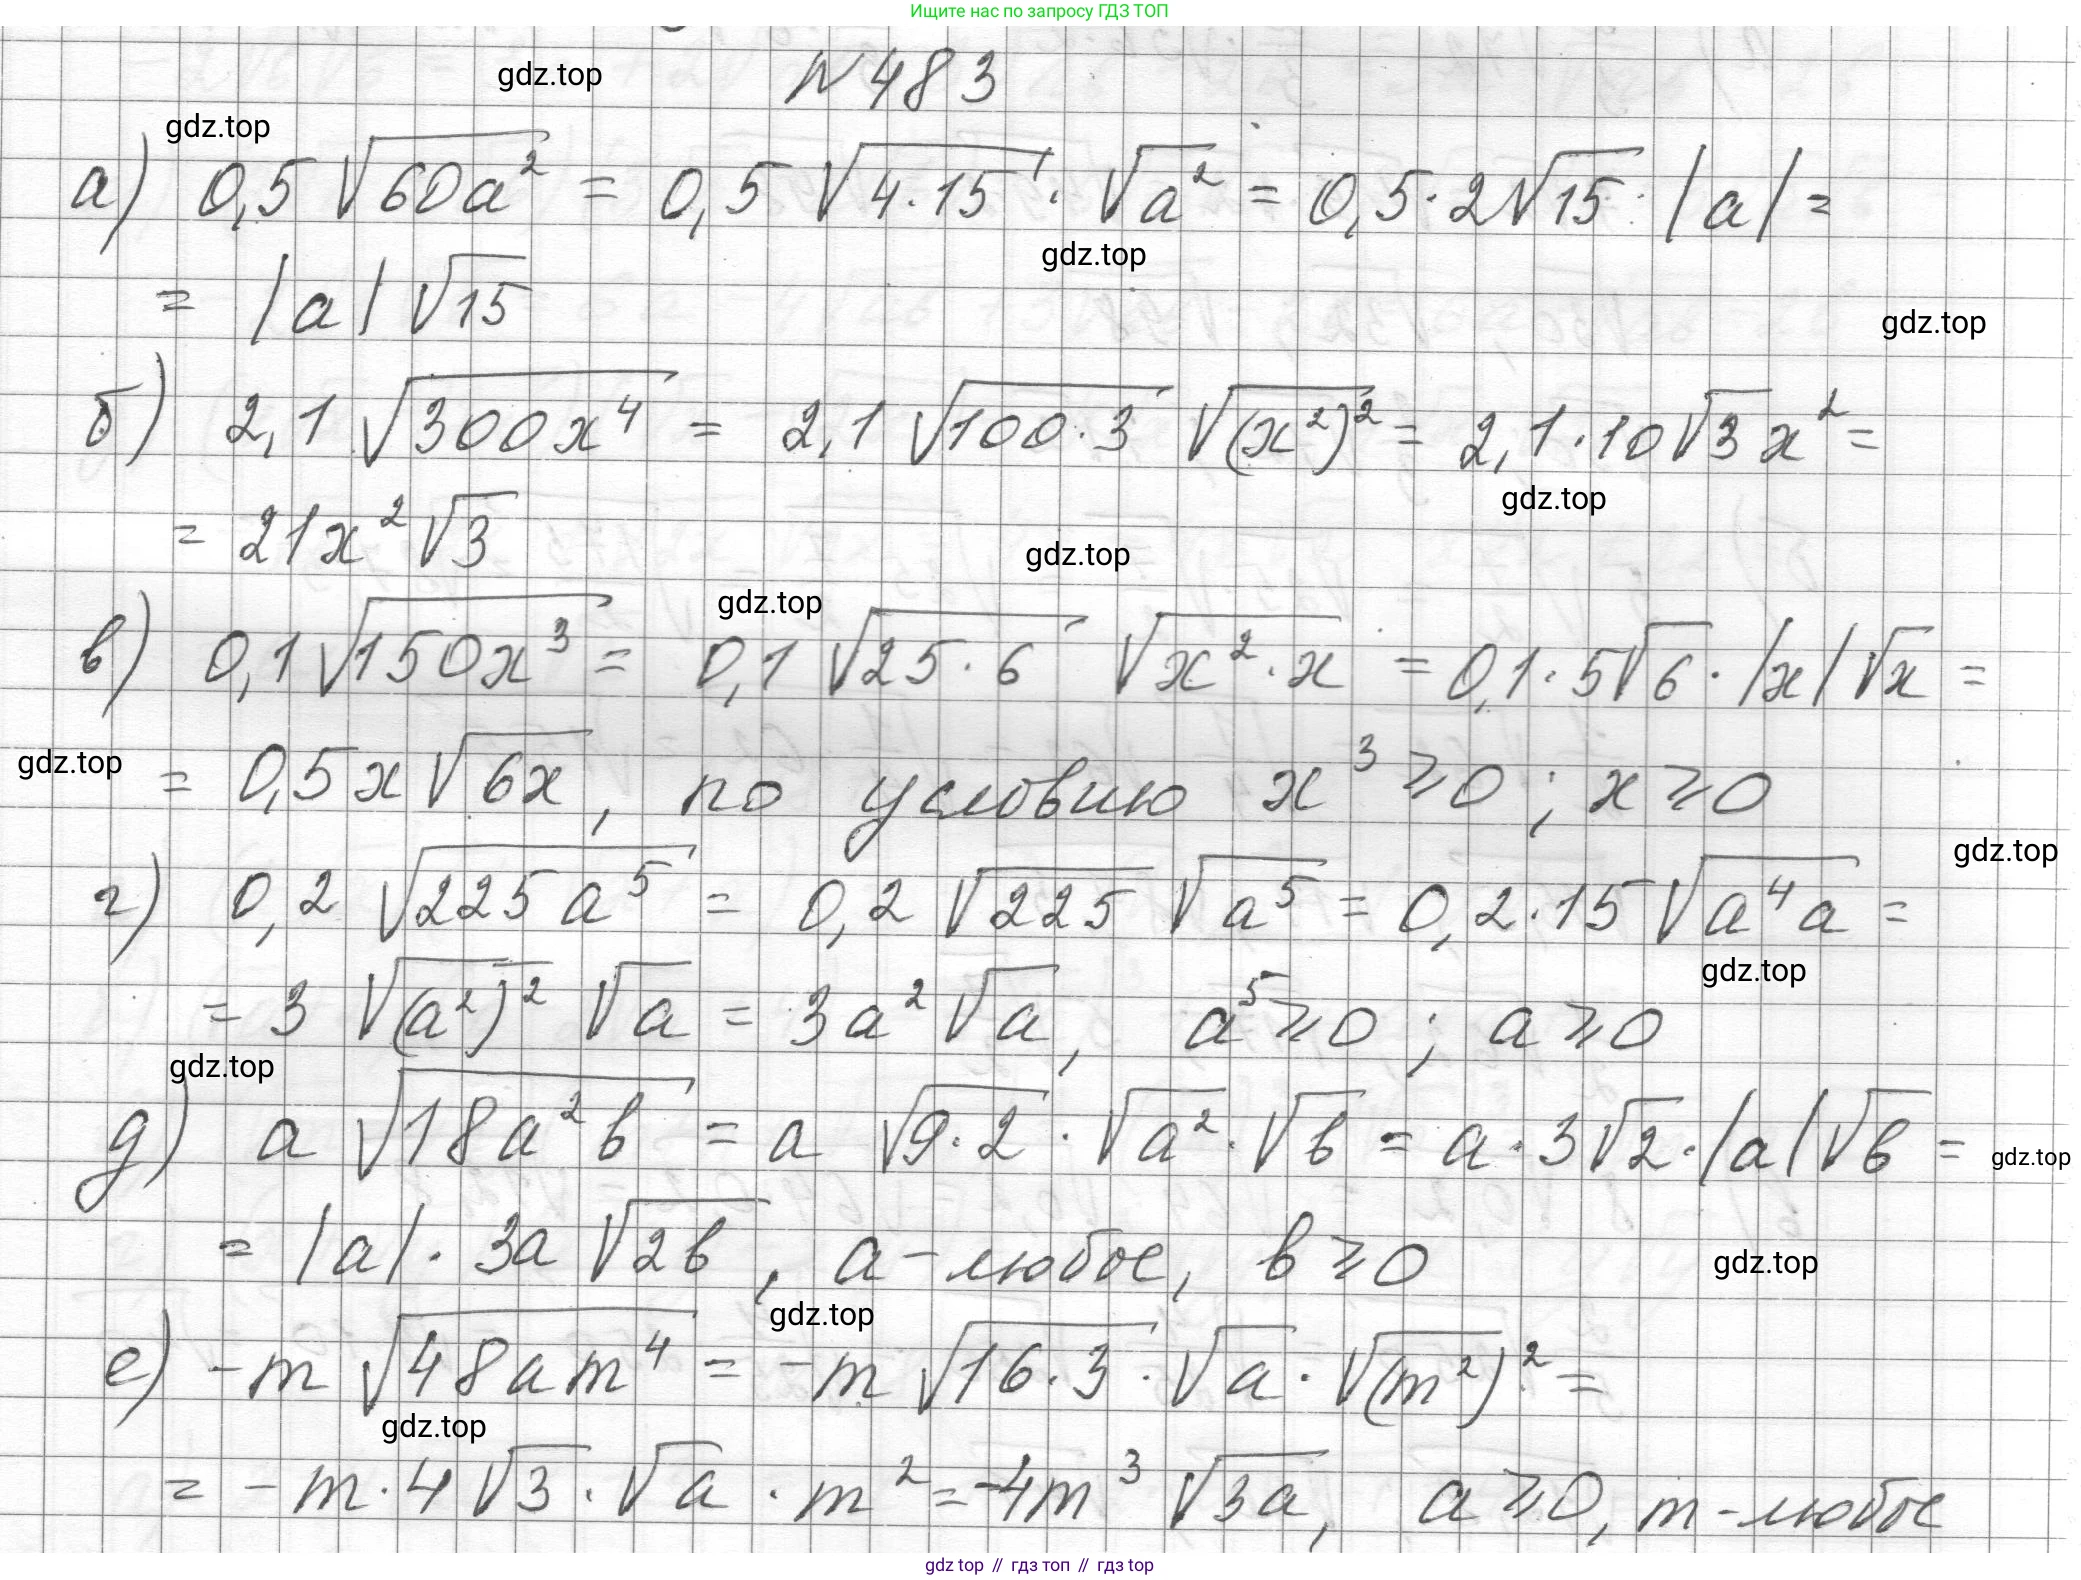 Ищите нас по запросу ГДЗ ТОП
gdz.top
№ 483
gdz.top
а) 0,5 √(60a²) = 0,5 √(4·15) · √(a²) = 0,5·2√15 · |a| =
gdz.top
= |a| √15
gdz.top
б) 2,1 √(300x⁴) = 2,1 √(100·3) √((x²)²) = 2,1·10√3 x² =
gdz.top
= 21x² √3
gdz.top
gdz.top
в) 0,1 √(150x³) = 0,1 √(25·6) √(x²·x) = 0,1·5√6 · |x| √x =
gdz.top
= 0,5x √(6x), по условию x³ ≥ 0; x ≥ 0
gdz.top
г) 0,2 √(225a⁵) = 0,2 √225 √(a⁵) = 0,2·15 √(a⁴a) =
gdz.top
= 3 √((a²)²) √a = 3a² √a, a⁵ ≥ 0; a ≥ 0
gdz.top
д) a √(18a²b) = a √(9·2) · √(a²) · √b = a·3√2 · |a| √b =
gdz.top
= |a| · 3a √(2b), a – любое, b ≥ 0
gdz.top
gdz.top
е) -m √(48am⁴) = -m √(16·3) · √a · √((m²)²) =
gdz.top
= -m·4 √3 · √a · m² = -4m³ √(3a), a ≥ 0, m – любое
gdz top // гдз топ // гдз top